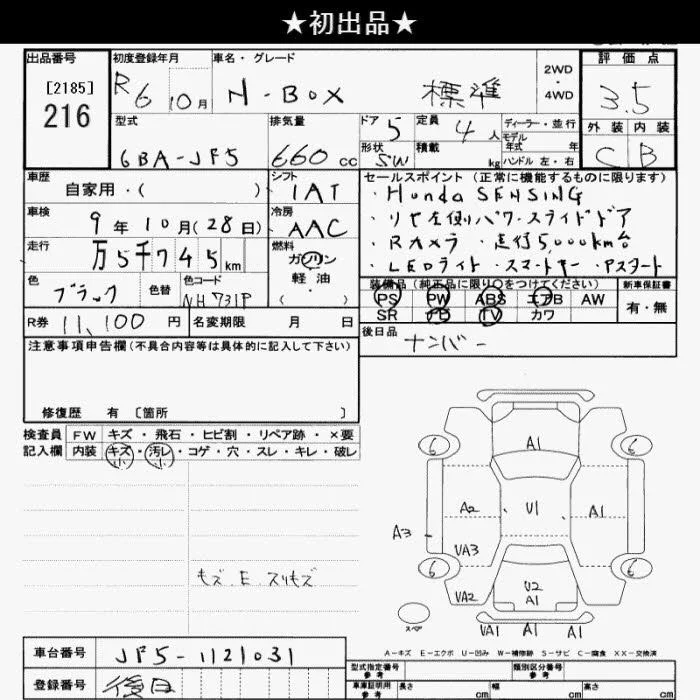 ★初出品★
出品番号
[2185]
216
初度登録年月
R6 10月
車名・グレード
N-BOX 標準
2WD
・
4WD
評価点
3.5
外装 内装
C B
型式
6BA-JF5
排気量
660 cc
ドア
5
定員
4 人
形状
SW
積載
kg
ディーラー・並行
モデル
年式 年
ハンドル 左・右
車歴
自家用・( )
シフト
IAT
車検
9年10月(28日)
冷房
AAC
走行
万5千745km
燃料
ガソリン
軽油
( )
色
ブラック
色替
色コード
NH731P
R券 11,100 円
名変期限 月 日
セールスポイント(正常に機能するものに限ります)
・Honda SENSING
・リヤ左側パワースライドドア
・Rカメラ ・走行5,000km台
・LEDライト ・スマートキー ・Pスタート
装備品(純正品に限り○をつけてください)
新車保証書
PS PW ABS エアB AW
SR TV カワ
有・無
後日品
ナンバー
注意事項申告欄(不具合内容等は具体的に記入して下さい)
修復歴 有〔箇所 〕
検査員
記入欄
FW キズ・飛石・ヒビ割・リペア跡・×要
内装 キズ・汚レ・コゲ・穴・スレ・キレ・破レ
小 小
モズ.E.スリキズ
A1
6 6
A2 U1 A1
A3
VA3
6 6
VA2
U2
A1
VA1 A1 A1
スペア
A-キズ E-エクボ U-凹み W-補修跡 S-サビ C-腐食 XX-交換済
車台番号
JF5-1121031
登録番号
後日
型式指定番号
参考
類別区分番号
参考
車庫証明用
参考
長さ cm
幅 cm
高さ cm